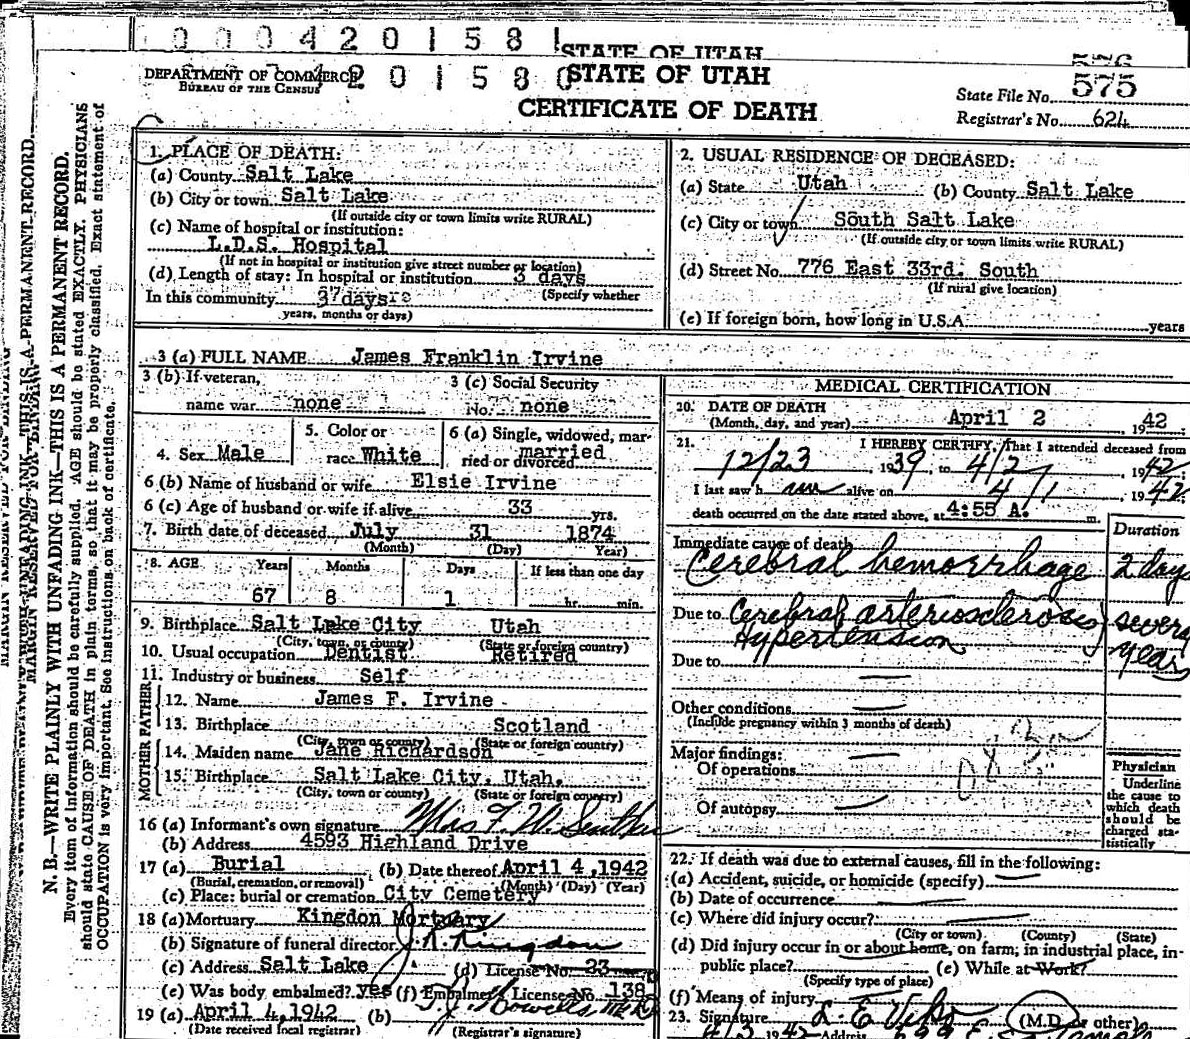 0 0 0 4 2 0 1 5 8 1
STATE OF UTAH
576
DEPARTMENT OF COMMERCE
BUREAU OF THE CENSUS
4 2 0 1 5 8 0
STATE OF UTAH
CERTIFICATE OF DEATH
State File No. 575
Registrar's No. 624
MARGIN RESERVED FOR BINDING
N. B.—WRITE PLAINLY WITH UNFADING INK—THIS IS A PERMANENT RECORD.
Every item of information should be carefully supplied. AGE should be stated EXACTLY. PHYSICIANS
should state CAUSE OF DEATH in plain terms, so that it may be properly classified. Exact statement of
OCCUPATION is very important. See instructions on back of certificate.
1. PLACE OF DEATH:
(a) County Salt Lake
(b) City or town Salt Lake
(If outside city or town limits write RURAL)
(c) Name of hospital or institution:
L.D.S. Hospital
(If not in hospital or institution give street number or location)
(d) Length of stay: In hospital or institution 3 days
(Specify whether
In this community
years, months or days)
2. USUAL RESIDENCE OF DECEASED:
(a) State Utah (b) County Salt Lake
(c) City or town South Salt Lake
(If outside city or town limits write RURAL)
(d) Street No. 776 East 33rd. South
(If rural give location)
(e) If foreign born, how long in U.S.A. years
3 (a) FULL NAME James Franklin Irvine
3 (b) If veteran, name war none
3 (c) Social Security No. none
4. Sex Male
5. Color or race White
6 (a) Single, widowed, married or divorced married
6 (b) Name of husband or wife Elsie Irvine
6 (c) Age of husband or wife if alive 33 yrs.
7. Birth date of deceased July 31 1874
(Month) (Day) Year)
8. AGE Years Months Days If less than one day
67 8 1 hr. min.
9. Birthplace Salt Lake City Utah
(City, town, or county) (State or foreign country)
10. Usual occupation Dentist Retired
11. Industry or business Self
FATHER
12. Name James F. Irvine
13. Birthplace Scotland
(City, town or county) (State or foreign country)
MOTHER
14. Maiden name Jane Richardson
15. Birthplace Salt Lake City, Utah.
(City, town or county) (State or foreign country)
16 (a) Informant's own signature Mrs F. W.
(b) Address 4593 Highland Drive
17 (a) Burial (b) Date thereof April 4, 1942
(Burial, cremation, or removal) (Month) (Day) (Year)
(c) Place: burial or cremation City Cemetery
18 (a) Mortuary Kingdon Mortuary
(b) Signature of funeral director J. R. Kingdon
(c) Address Salt Lake (d) License No. 23
(e) Was body embalmed? yes (f) Embalmer's License No. 138
19 (a) April 4, 1942 (b)
(Date received local registrar) (Registrar's signature)
MEDICAL CERTIFICATION
20. DATE OF DEATH April 2, 1942
(Month, day, and year)
21. I HEREBY CERTIFY, That I attended deceased from
12/23, 1939, to 4/2, 1942
I last saw h im alive on 4/1, 1942
death occurred on the date stated above, at 4:55 A. m.
Duration
Immediate cause of death
Cerebral hemorrhage 2 days
Due to Cerebral arteriosclerosis, several
Hypertension years
Due to
Other conditions
(Include pregnancy within 3 months of death)
Major findings:
Of operations
Of autopsy
Physician
Underline
the cause to
which death
should be
charged sta-
tistically
22. If death was due to external causes, fill in the following:
(a) Accident, suicide, or homicide (specify)
(b) Date of occurrence
(c) Where did injury occur?
(City or town) (County) (State)
(d) Did injury occur in or about home, on farm, in industrial place, in
public place? (e) While at Work?
(Specify type of place)
(f) Means of injury
23. Signature L. E. (M.D. or other)
4/3 1942 Address